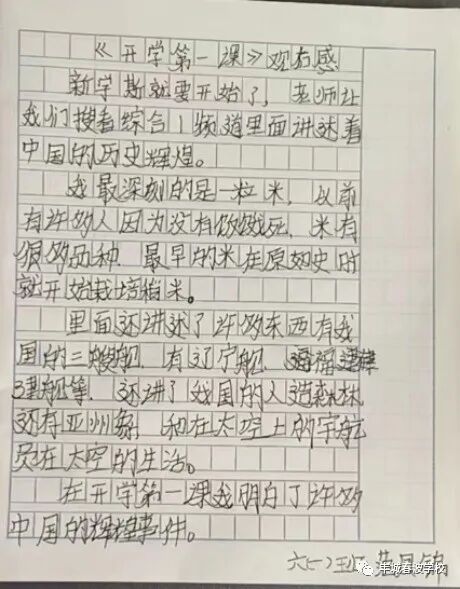 《开学第一课》观后感
新学期就要开始了，老师让
我们搜看综合1频道里面讲述着
中国的历史辉煌。
我最深刻的是一粒米，以前
有许多人因为没有饭饿死，米有
很多品种，最早的米在原始史时
就开始栽培稻米。
里面还讲述了许多东西有我
国的三艘舰，有辽宁舰，福建
舰等，还讲了我国的人造森林
还有亚州象，和在太空上的宇航
员在太空的生活。
在开学第一课我明白了许多
中国的辉煌事件。
六(一)班
羊城春波学校